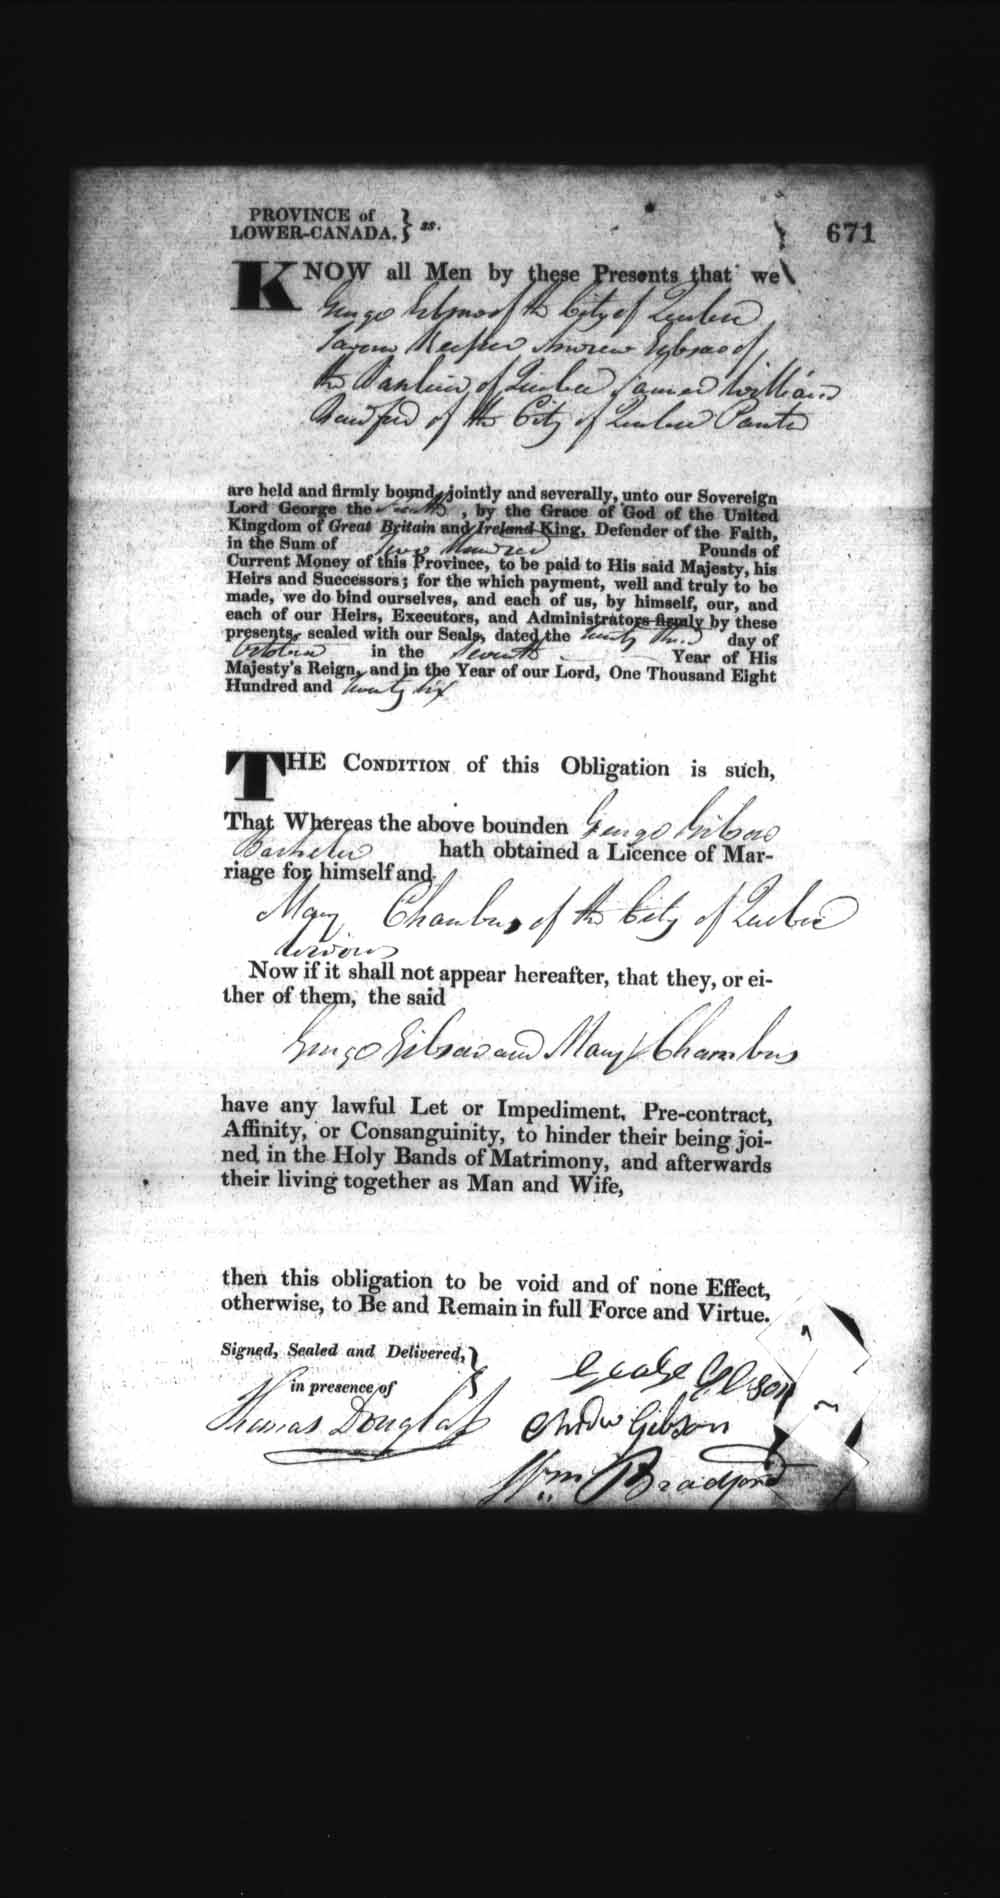 PROVINCE of
LOWER-CANADA, } ss.
671
KNOW all Men by these Presents that we
George Gibson of the City of Quebec
Tavern Keeper Andrew Gibson of
the Banlieu of Quebec and William
Bradford of the City of Quebec
are held and firmly bound, jointly and severally, unto our Sovereign
Lord George the fourth, by the Grace of God of the United
Kingdom of Great Britain and Ireland King, Defender of the Faith,
in the Sum of Two Hundred Pounds of
Current Money of this Province, to be paid to His said Majesty, his
Heirs and Successors; for the which payment, well and truly to be
made, we do bind ourselves, and each of us, by himself, our, and
each of our Heirs, Executors, and Administrators firmly by these
presents, sealed with our Seals, dated the twenty third day of
October in the Seventh Year of His
Majesty's Reign, and in the Year of our Lord, One Thousand Eight
Hundred and twenty six
THE CONDITION of this Obligation is such,
That Whereas the above bounden George Gibson
Bachelor hath obtained a Licence of Mar-
riage for himself and
Mary Chambers of the City of Quebec
Widow
Now if it shall not appear hereafter, that they, or ei-
ther of them, the said
George Gibson and Mary Chambers
have any lawful Let or Impediment, Pre-contract,
Affinity, or Consanguinity, to hinder their being joi-
ned in the Holy Bands of Matrimony, and afterwards
their living together as Man and Wife,
then this obligation to be void and of none Effect,
otherwise, to Be and Remain in full Force and Virtue.
Signed, Sealed and Delivered, }
in presence of
George Gibson
Thomas Douglas
Andw Gibson
Wm Bradford